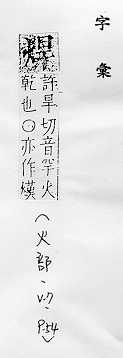 字彙
焊
許旱切音罕火
乾也○亦作熯
(火部、V.7、P.54)